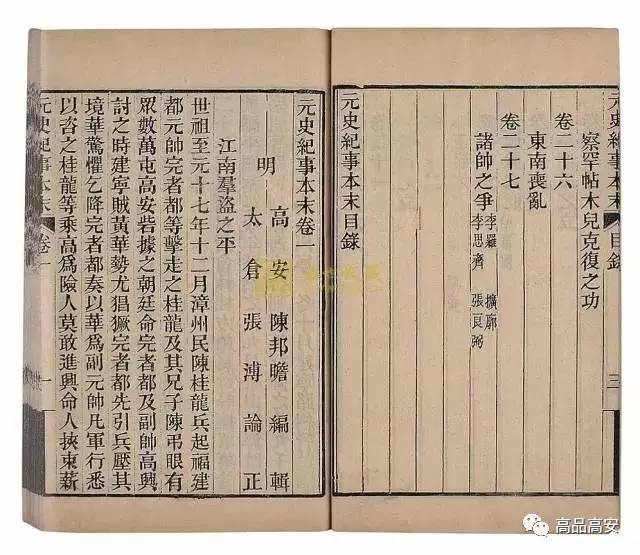 元史紀事本末 目錄 三
察罕帖木兒克復之功
卷二十六
東南喪亂
卷二十七
諸帥之爭 孛羅 擴廓
李思齊 張良弼
元史紀事本末目錄
元史紀事本末卷一
明 高安 陳邦瞻 編輯
太倉 張溥 論正
江南羣盜之平
世祖至元十七年十二月漳州民陳桂龍兵起福建
都元帥完者都等擊走之桂龍及其兄子陳弔眼有
眾數萬屯高安砦據之朝廷命完者都及副帥高興
討之時建寧賊黃華勢尤猖獗完者都先引兵壓其
境華驚懼乞降完者都奏以華爲副元帥凡軍行悉
以咨之桂龍等乘高爲險人莫敢進興命人挾束薪
元史紀事本末 卷一 一
高品高安